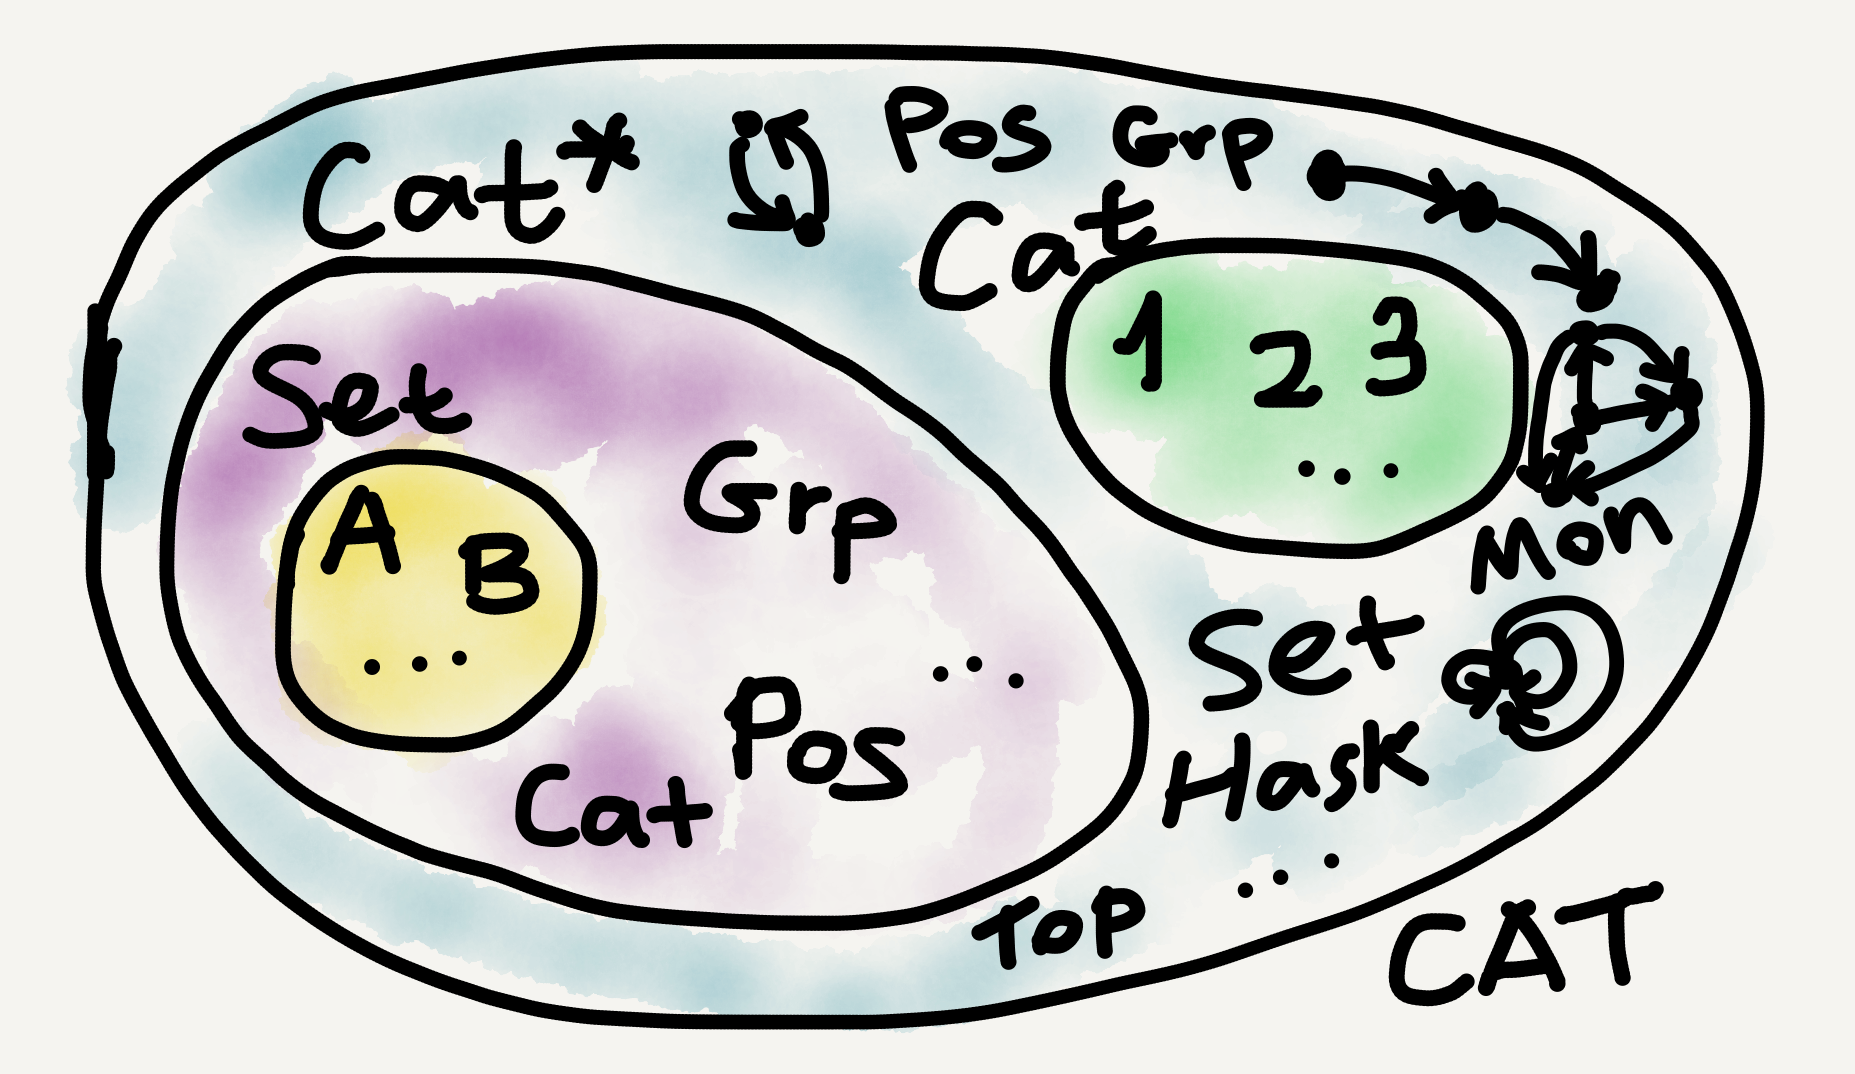 Cat*
Pos Grp
Cat
1 2 3
...
Set
A B
...
Grp
Pos
...
Cat
Mon
Set
Hask
...
Top
CAT